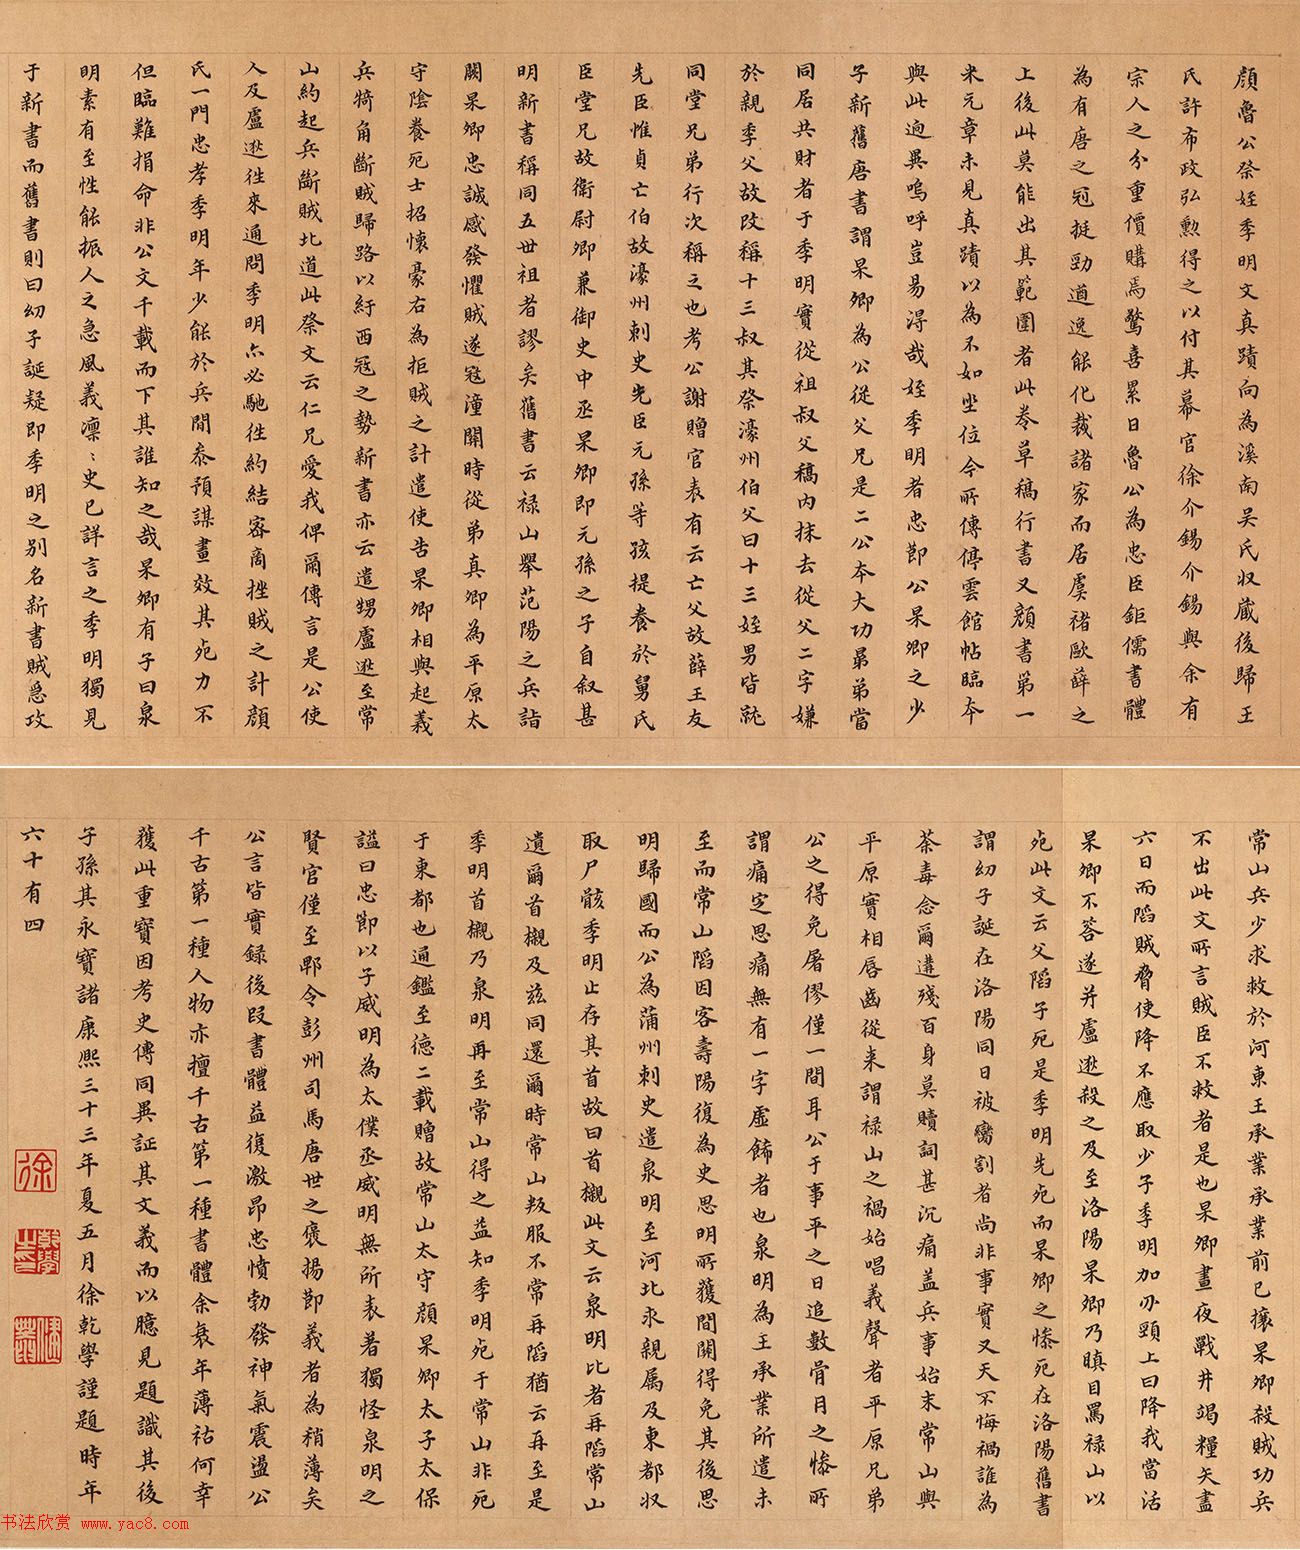 顏魯公祭姪季明文真蹟向為溪南吳氏收藏後歸王
氏許布政弘勲得之以付其幕官徐介錫介錫與余有
宗人之分重價購焉驚喜累日魯公為忠臣鉅儒書體
為有唐之冠挺勁遒逸能化裁諸家而居虞褚歐薛之
上後此莫能出其範圍者此卷草稿行書又顏書第一
米元章未見真蹟以為不如坐位今所傳停雲館帖臨本
與此逈異嗚呼豈易得哉姪季明者忠節公杲卿之少
子新舊唐書謂杲卿為公從父兄是二公本大功弟弟當
同居共財者于季明實從祖叔父稿內抹去從父二字嫌
於親季父故改稱十三叔其祭濠州伯父曰十三姪男皆就
同堂兄弟行次稱之也考公謝贈官表有云亡父故薛王友
先臣惟貞亡伯故濠州刺史先臣元孫等孩提養於舅氏
臣堂兄故衛尉卿兼御史中丞杲卿即元孫之子自叙甚
明新書稱同五世祖者謬矣舊書云禄山舉范陽之兵詣
闕杲卿忠誠感發懼賊遂寇潼關時從弟真卿為平原太
守陰養死士招懷豪右為拒賊之計遣使告杲卿相與起義
兵犄角斷賊歸路以紓西寇之勢新書亦云遣甥盧逖至常
山約起兵斷賊北道此祭文云仁兄愛我俾爾傳言是公使
人及盧逖往來通問季明亦必馳往約結密商挫賊之計顏
氏一門忠孝季明年少能於兵間叅預謀畫效其死力不
但臨難捐命非公文千載而下其誰知之哉杲卿有子曰泉
明素有至性能振人之急風義凛〻史已詳言之季明獨見
于新書而舊書則曰幼子誕疑即季明之别名新書賊急攻
常山兵少求救於河東王承業承業前已攘杲卿殺賊功兵
不出此文所言賊臣不救者是也杲卿晝夜戰井竭糧矢盡
六日而蹈賊脅使降不應取少子季明加刃頸上曰降我當活
杲卿不答遂并盧逖殺之及至洛陽杲卿乃瞋目罵禄山以
死此文云父蹈子死是季明先死而杲卿之慘死在洛陽舊書
謂幼子誕在洛陽同日被臠割者尚非事實又天不悔禍誰為
荼毒念爾遘殘百身莫贖詞甚沉痛盖兵事始末常山與
平原實相唇齒從来謂禄山之禍始唱義聲者平原兄弟
公之得免屠僇僅一間耳公于事平之日追數骨月之慘所
謂痛定思痛無有一字虛飾者也泉明為王承業所遣未
至而常山蹈因客壽陽復為史思明所獲間關得免其後思
明歸國而公為蒲州刺史遣泉明至河北求親属及東都收
取尸骸季明止存其首故曰首櫬此文云泉明比者再蹈常山
遺爾首櫬及茲同還爾時常山叛服不常再蹈猶云再至是
季明首櫬乃泉明再至常山得之益知季明死于常山非死
于東都也通鑑至德二載贈故常山太守顏杲卿太子太保
諡曰忠節以子威明為太僕丞威明無所表著獨怪泉明之
賢官僅至郫令彭州司馬唐世之褒揚節義者為稍薄矣
公言皆實録後段書體益復激昂忠憤勃發神氣震盪公
千古第一種人物亦擅千古第一種書體余衰年薄祜何幸
獲此重寶因考史傳同異証其文義而以臆見題識其後
子孫其永寶諸康熙三十三年夏五月徐乾學謹題時年
六十有四
徐
乾學之印
健菴
书法欣赏 www.yac8.com